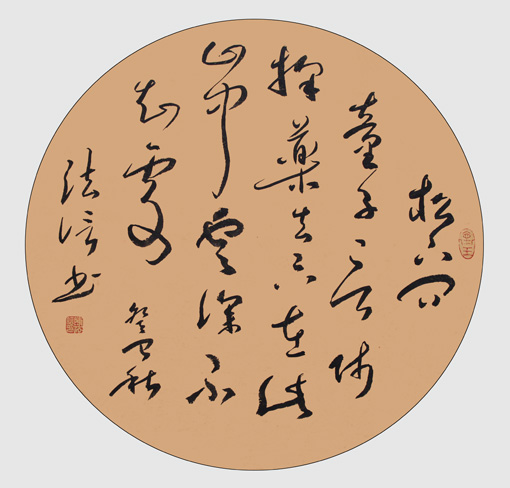 松下問
童子言師
採藥去只在此
山中雲深不
知處 癸巳秋
法 書